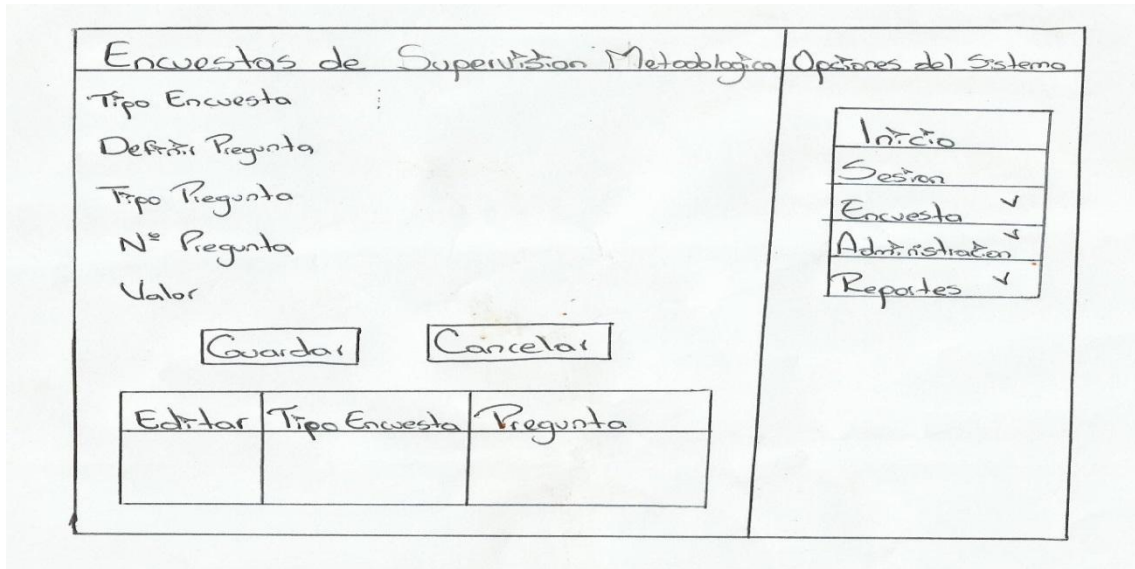 Encuestas de Supervisión Metodologica
Tipo Encuesta :
Definir Pregunta
Tipo Pregunta
Nº Pregunta
Valor
Guardar Cancelar
Editar Tipo Encuesta Pregunta
Opciones del Sistema
Inicio
Sesion
Encuesta
Administracion
Reportes